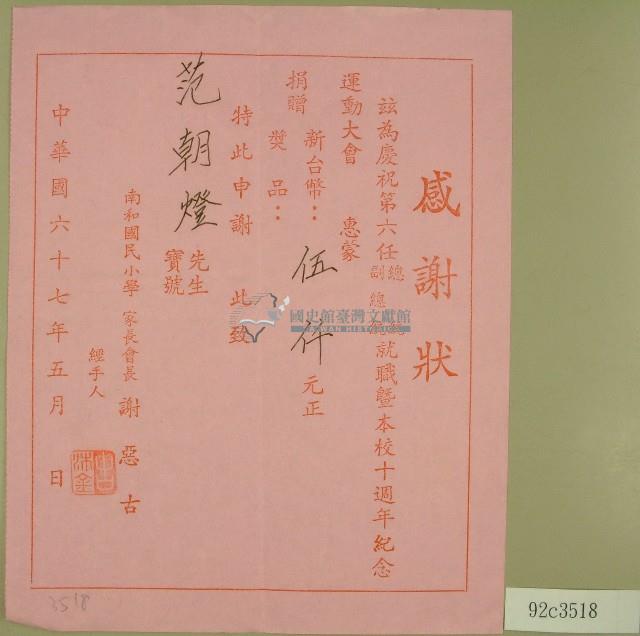 感謝狀
茲為慶祝第六任總統副總統就職暨本校十週年紀念
運動大會 惠蒙
捐贈 新台幣：伍仟元正
獎品：
特此申謝 此致
范朝燈 先生
寶號
南和國民小學 家長會長 謝惡古
經手人
中華國六十七年五月 日
國史館臺灣文獻館
TAIWAN HISTORICA
3518
92c3518